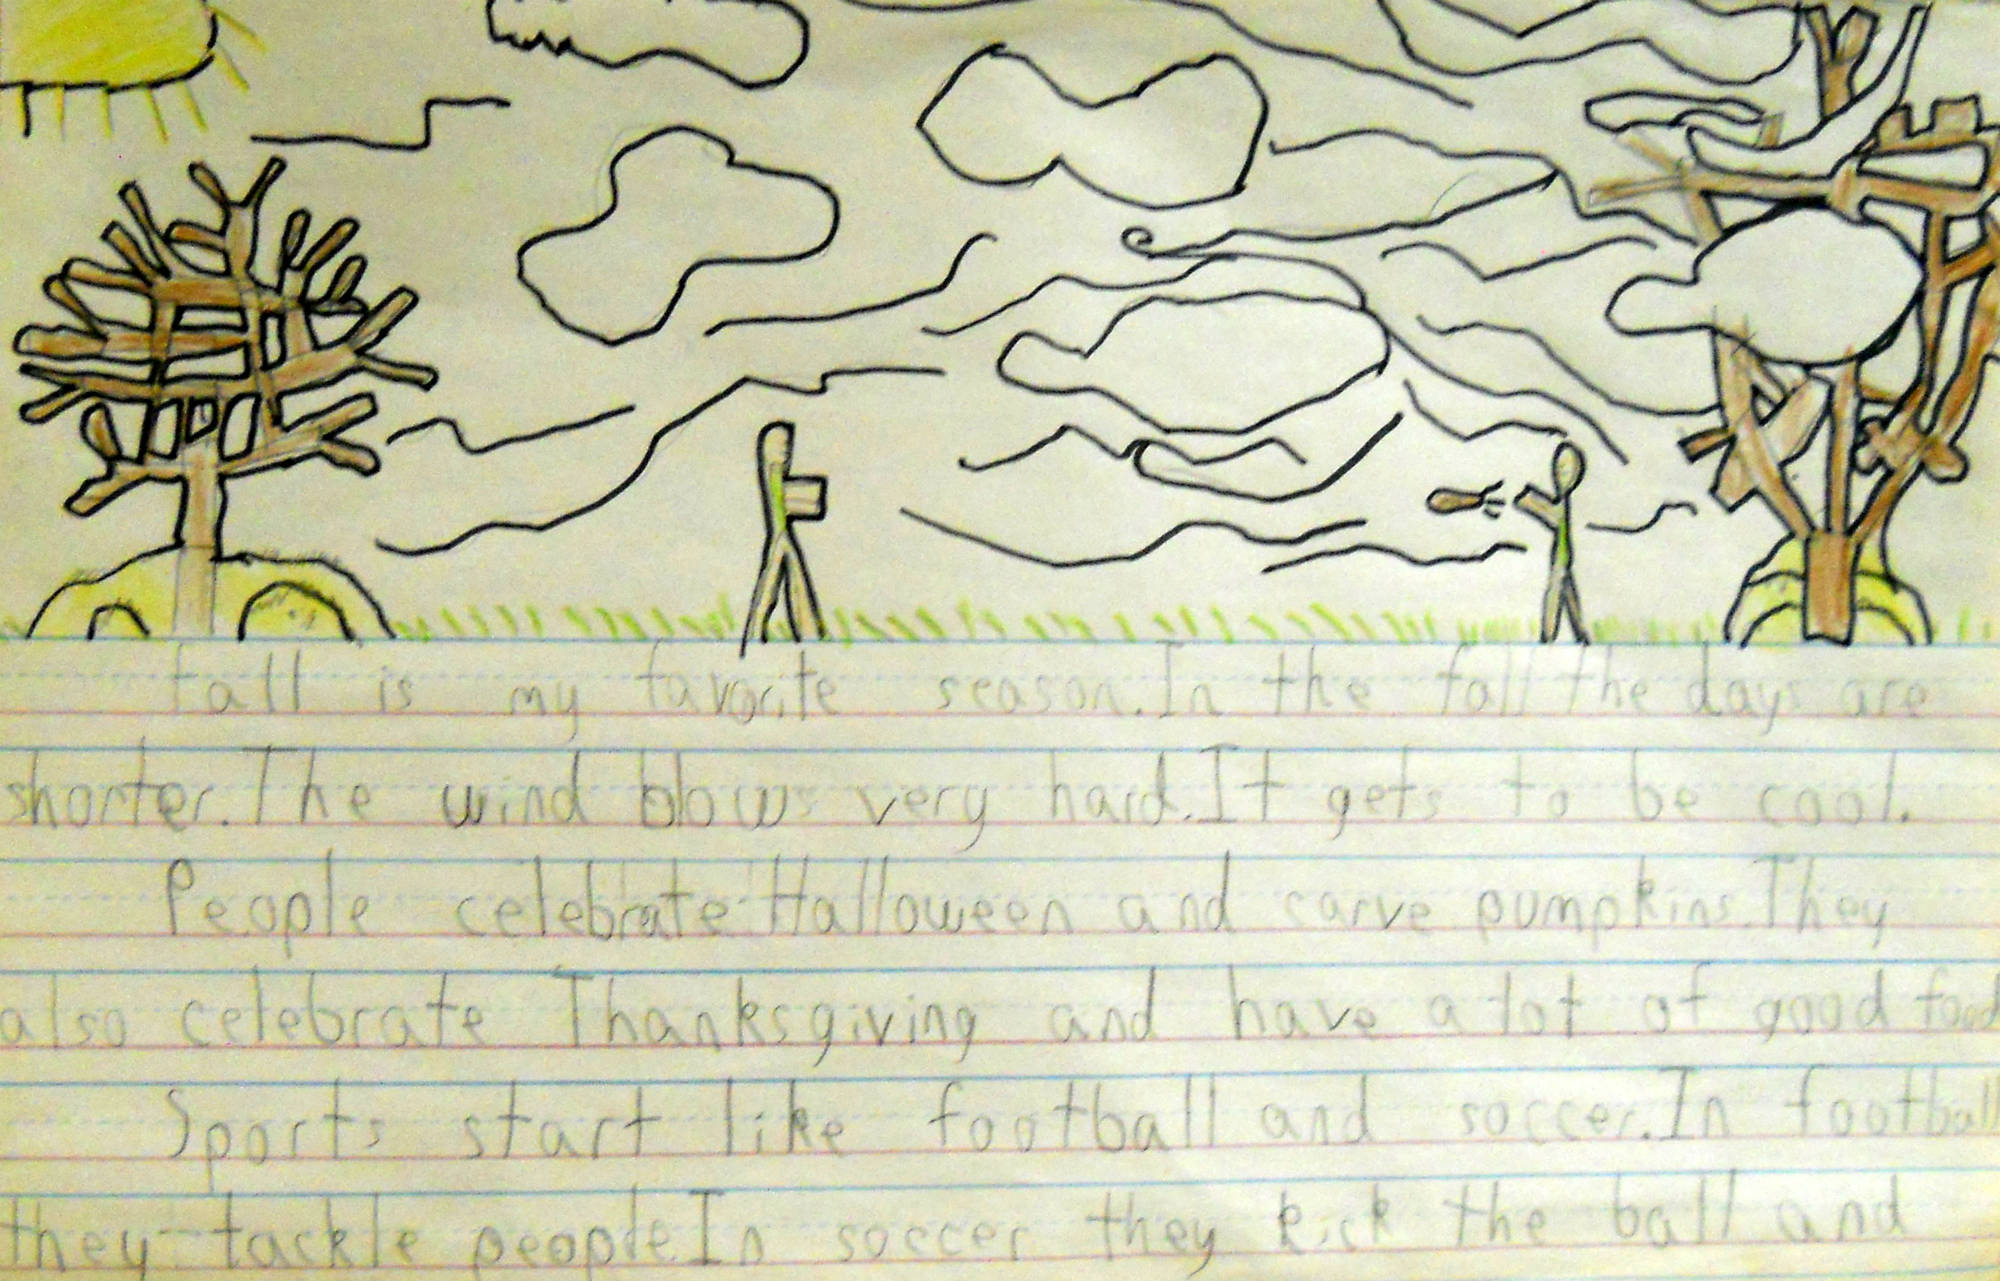 Fall is my favorite season. In the fall the days are
shorter. The wind blows very hard. It gets to be cool.
People celebrate Halloween and carve pumpkins. They
also celebrate Thanksgiving and have a lot of good food
Sports start like football and soccer. In football
they tackle people. In soccer they kick the ball and